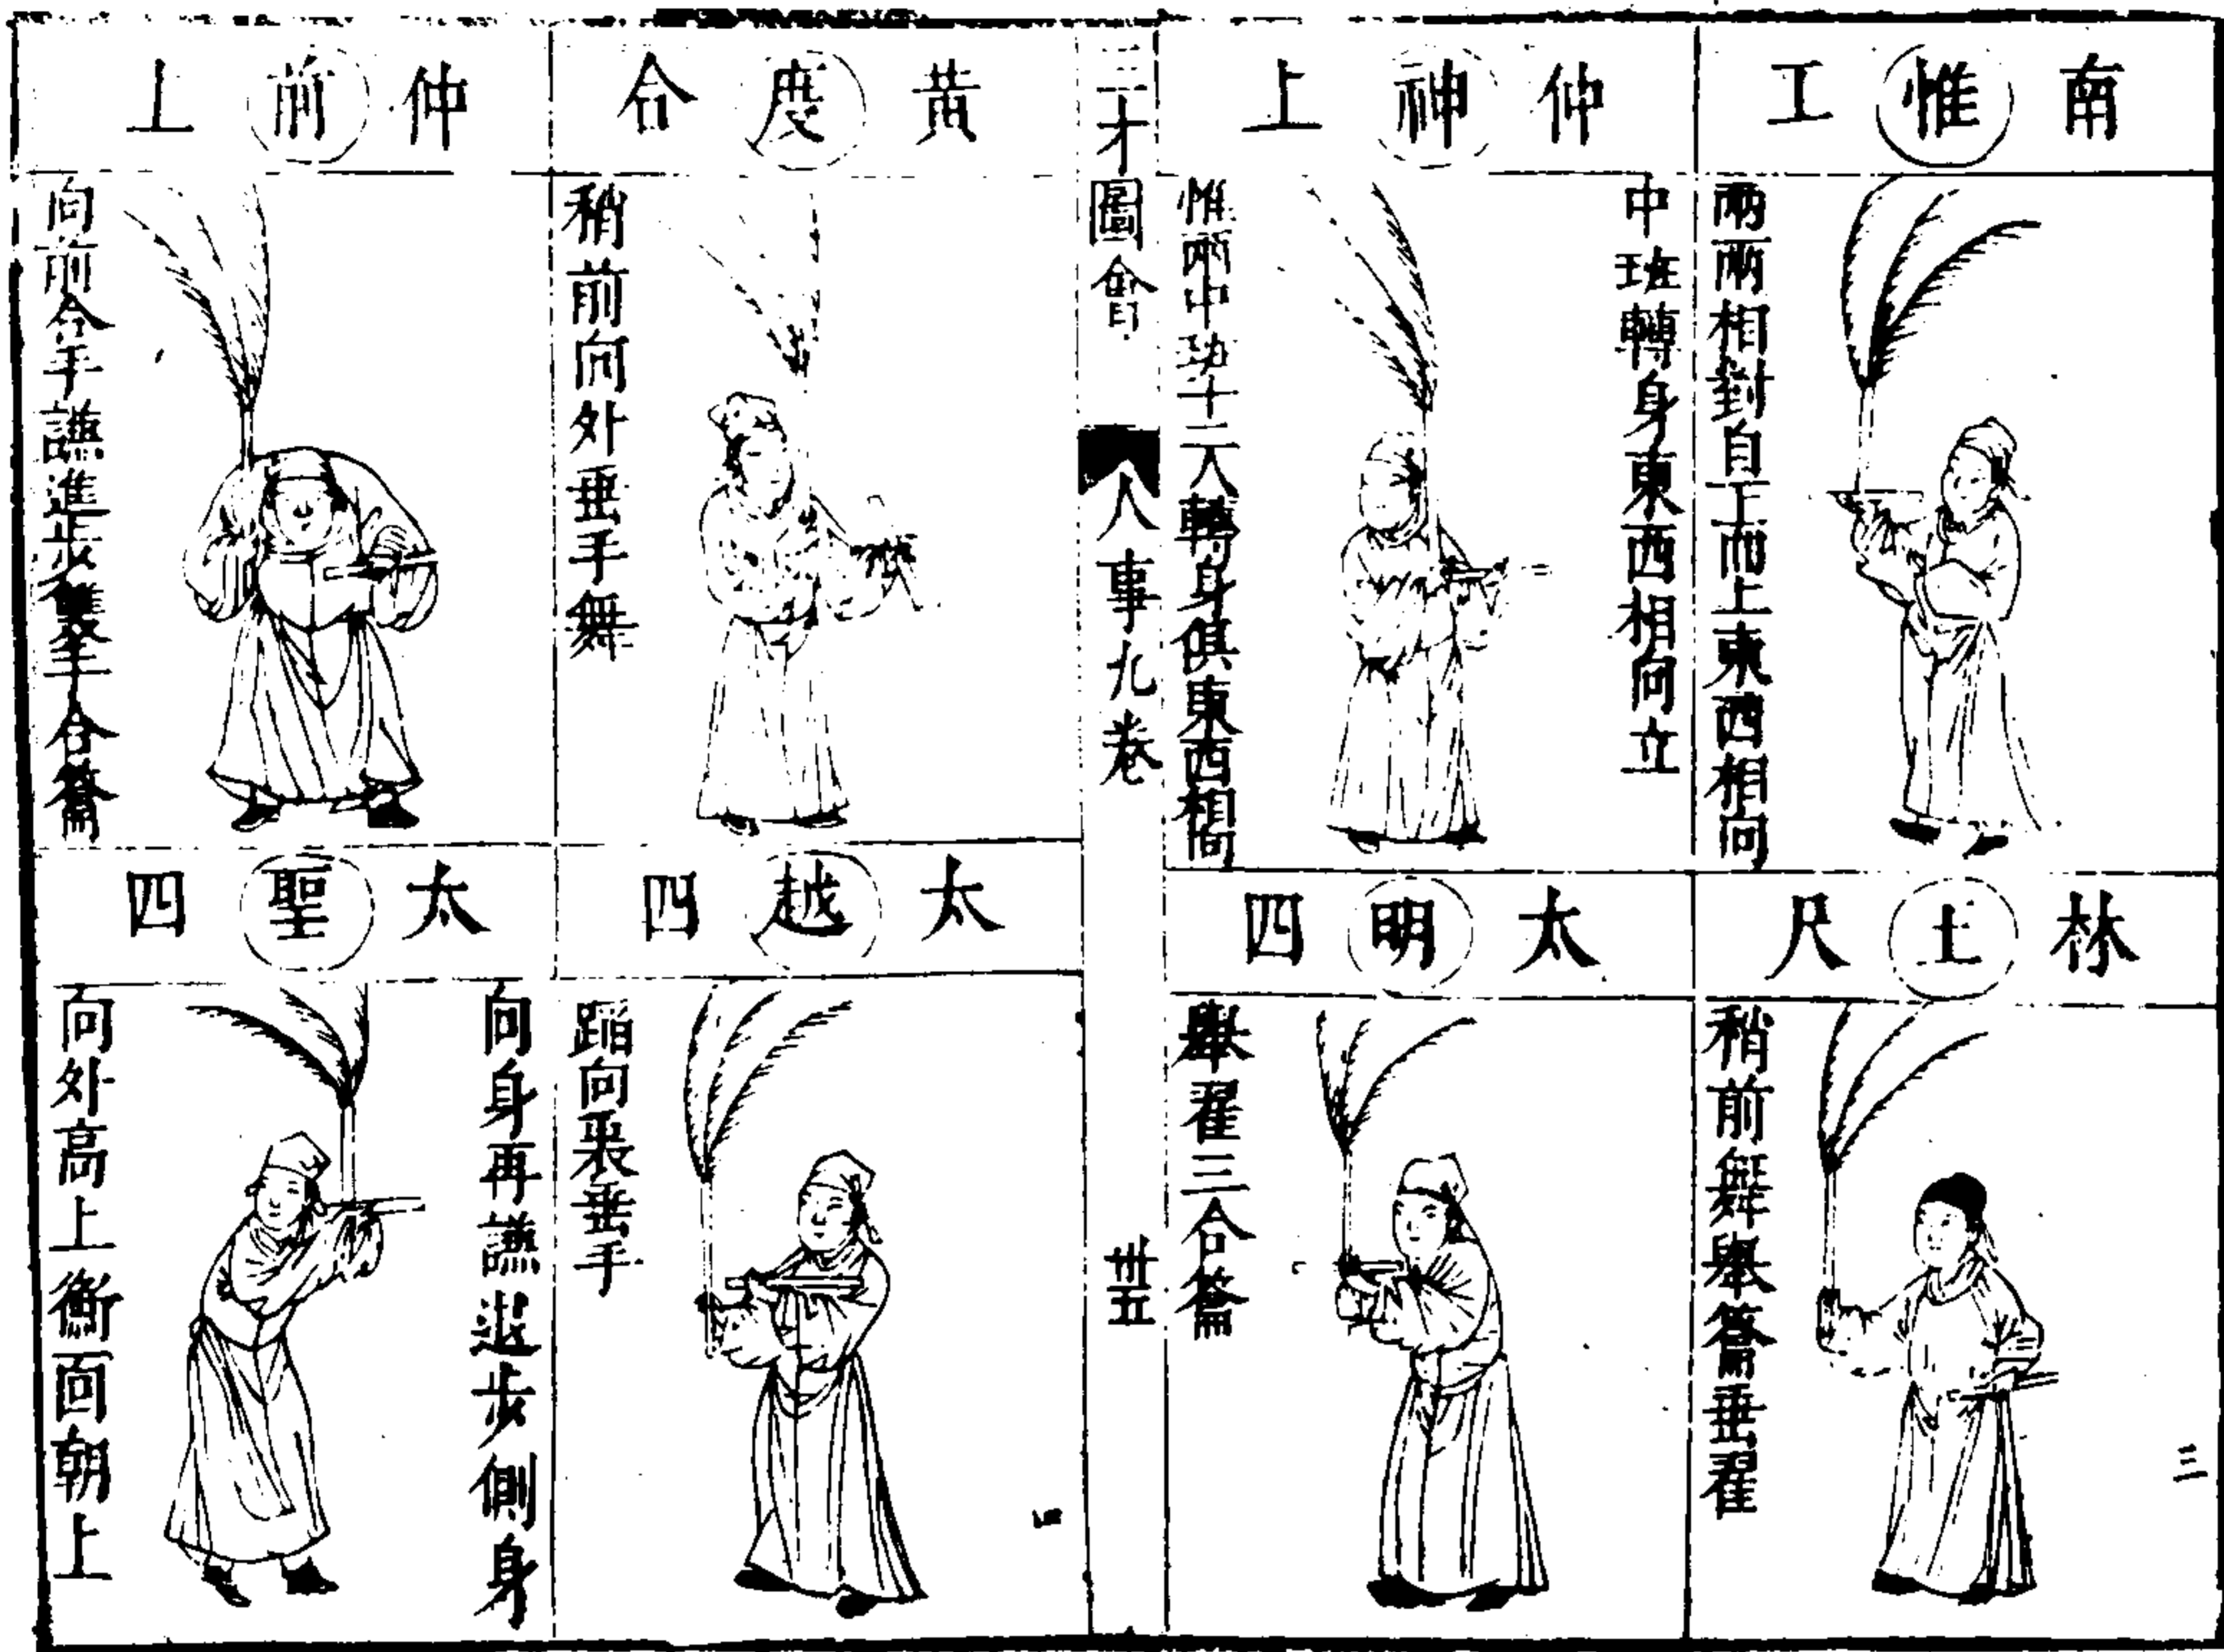 南惟工
兩兩相對自下而上東西相向
林王尺
稍前舞舉籥垂翟
三
仲神上
中班轉身東西相向立
惟兩中班十二人轉身俱東西相向
太明四
舉翟三合籥
三才圖會
人事九卷
卅五
黄度合
稍前向外垂手舞
太越四
蹈向裏垂手
四
仲前上
向前合手謙進步雙手合籥
太聖四
向身再謙退步側身
向外高上衡面朝上